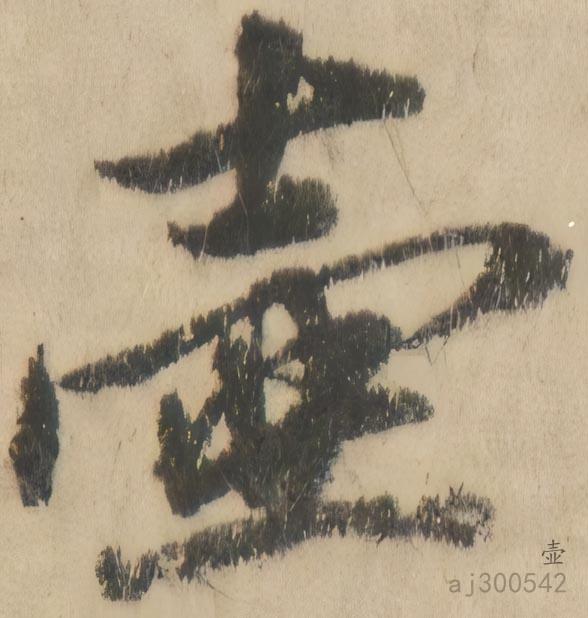 壶
壶
aj300542